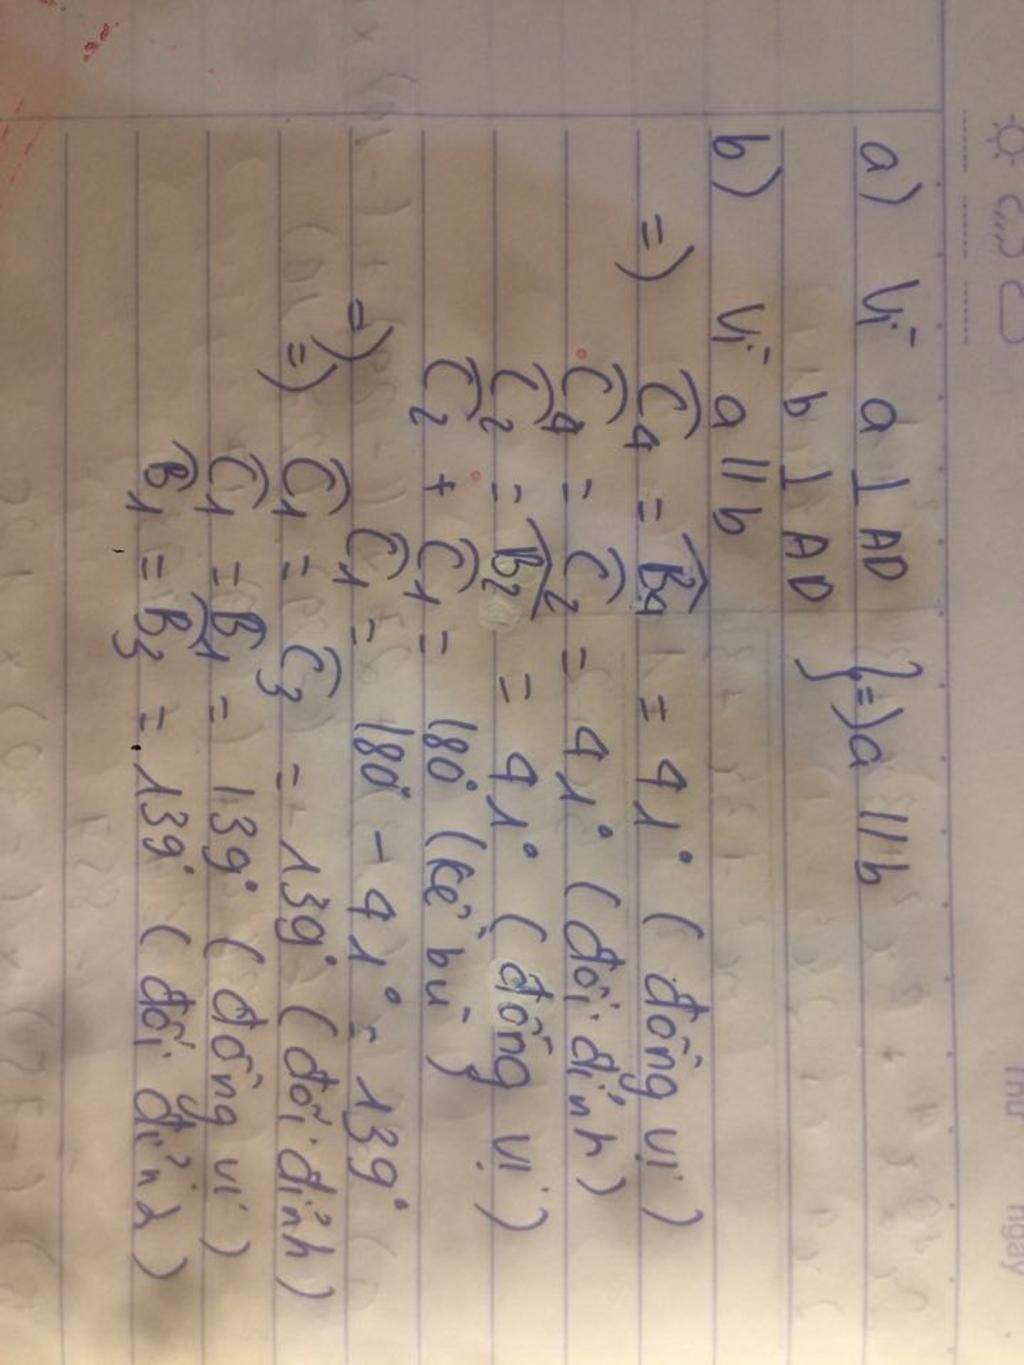 Thứ ngày
a) Vì a ⊥ AD
b ⊥ AD } => a // b
b) Vì a // b
=> Ĉ4 = B̂4 = 41° (đồng vị)
Ĉ4 = Ĉ2 = 41° (đối đỉnh)
Ĉ2 = B̂2 = 41° (đồng vị)
Ĉ2 + Ĉ1 = 180° (kề bù)
=> Ĉ1 = 180° - 41° = 139°
=> Ĉ1 = Ĉ3 = 139° (đối đỉnh)
Ĉ1 = B̂1 = 139° (đồng vị)
B̂1 = B̂3 = 139° (đối đỉnh)